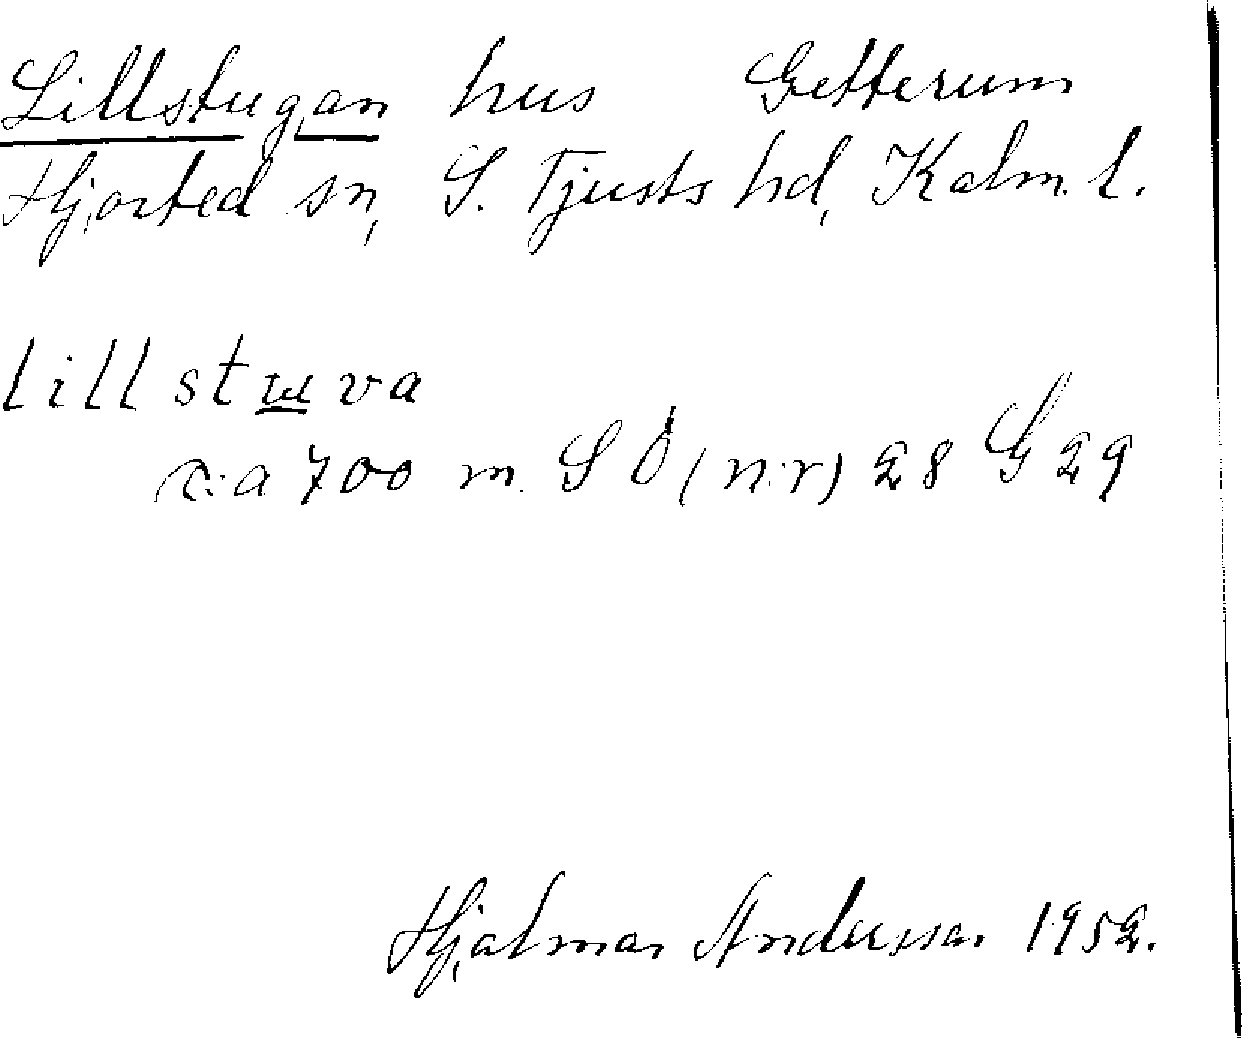 Lillstugan hus Getterum
Hjorted sn, S. Tjusts hd, Kalm. l.
lillstuva
c:a 700 m. SÖ (n:r) 28 G 29
Hjalmar Andersson 1952.